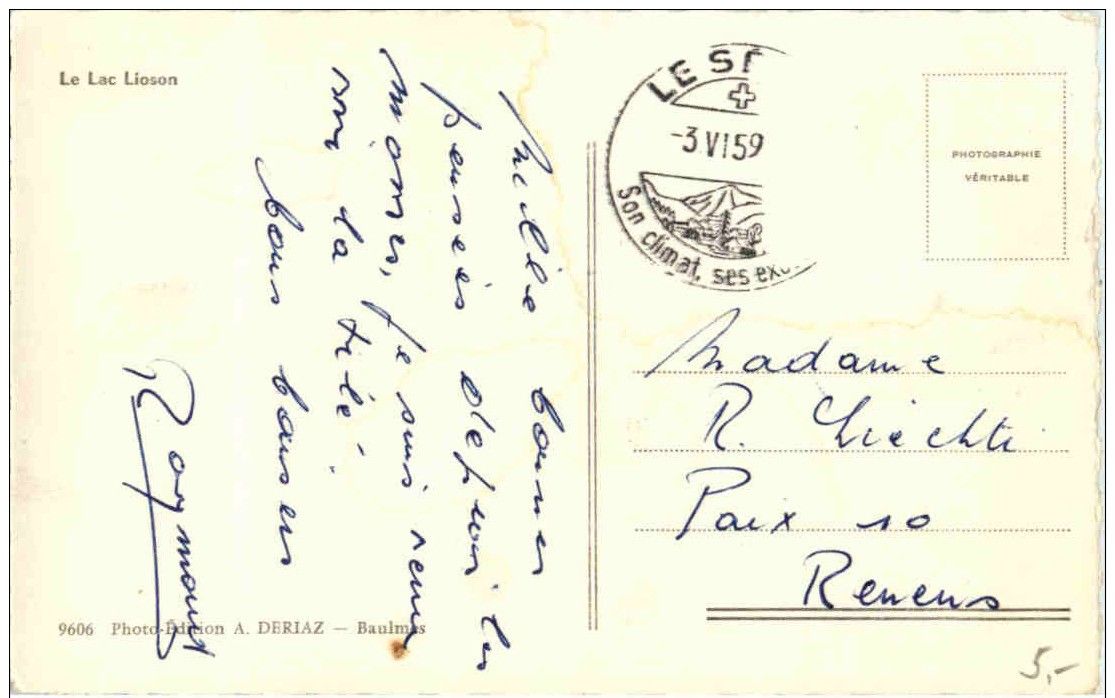 Le Lac Lioson
Mille bonnes
pensées depuis les
Mosses, je suis venu
voir la télé.
bons baisers
Raymond
9606 Photo-Édition A. DERIAZ — Baulmes
LE S
-3 VI 59
Son climat, ses
PHOTOGRAPHIE
VÉRITABLE
Madame
R. Liechti
Paix 10
Renens
5,-